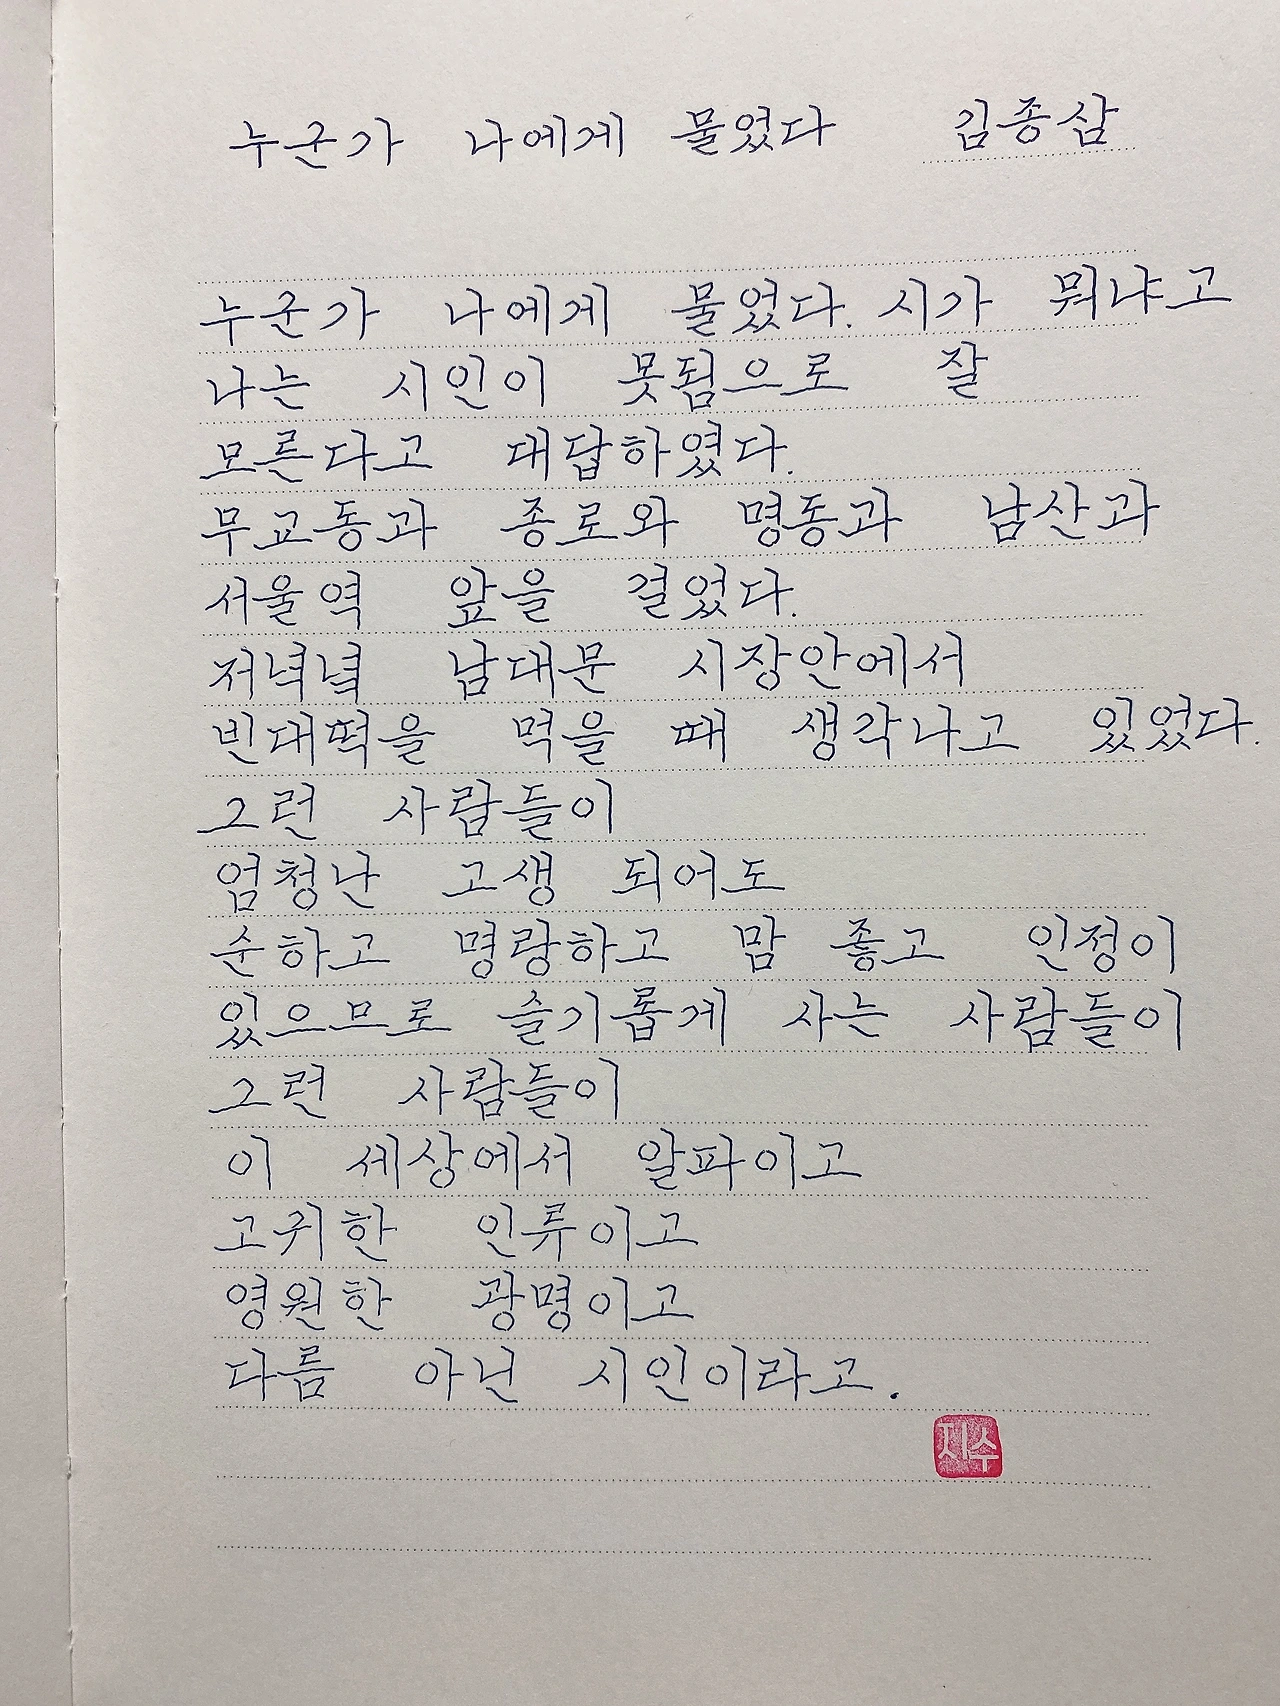 누군가 나에게 물었다 김종삼
누군가 나에게 물었다. 시가 뭐냐고
나는 시인이 못됨으로 잘
모른다고 대답하였다.
무교동과 종로와 명동과 남산과
서울역 앞을 걸었다.
저녁녘 남대문 시장안에서
빈대떡을 먹을 때 생각나고 있었다.
그런 사람들이
엄청난 고생 되어도
순하고 명랑하고 맘 좋고 인정이
있으므로 슬기롭게 사는 사람들이
그런 사람들이
이 세상에서 알파이고
고귀한 인류이고
영원한 광명이고
다름 아닌 시인이라고.